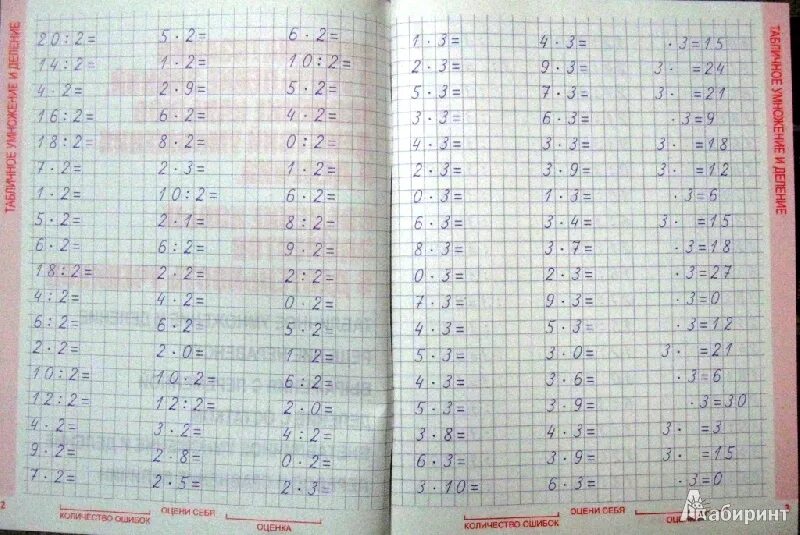 ТАБЛИЧНОЕ УМНОЖЕНИЕ И ДЕЛЕНИЕ
20:2= 5·2= 6·2=
14:2= 1·2= 10:2=
4·2= 2·9= 5·2=
16:2= 6·2= 4·2=
18:2= 8·2= 0:2=
7·2= 2·3= 1·2=
1·2= 10:2= 6·2=
5·2= 2·1= 8:2=
6·2= 6:2= 9·2=
18:2= 2·2= 2:2=
4:2= 4·2= 0·2=
6:2= 6·2= 5·2=
2·2= 2·0= 1·2=
10:2= 10·2= 6:2=
12:2= 12:2= 2·0=
4·2= 3·2= 4:2=
9·2= 2·8= 0·2=
7·2= 2·5= 2·3=
2
КОЛИЧЕСТВО ОШИБОК ОЦЕНИ СЕБЯ ОЦЕНКА
1·3= 4·3= ·3=15
2·3= 9·3= 3· =24
5·3= 7·3= 3· =21
3·3= 6·3= ·3=9
4·3= 3·3= 3· =18
2·3= 3·9= 3· =12
0·3= 1·3= ·3=6
6·3= 3·4= 3· =15
8·3= 3·7= ·3=18
0·3= 2·3= ·3=27
7·3= 9·3= ·3=0
4·3= 5·3= ·3=12
5·3= 3·0= 3· =21
4·3= 3·6= ·3=6
5·3= 3·9= ·3=30
3·8= 4·3= 3· =3
6·3= 3·9= 3· =15
3·10= 6·3= ·3=0
КОЛИЧЕСТВО ОШИБОК ОЦЕНИ СЕБЯ
ТАБЛИЧНОЕ УМНОЖЕНИЕ И ДЕЛЕНИЕ
Лабиринт